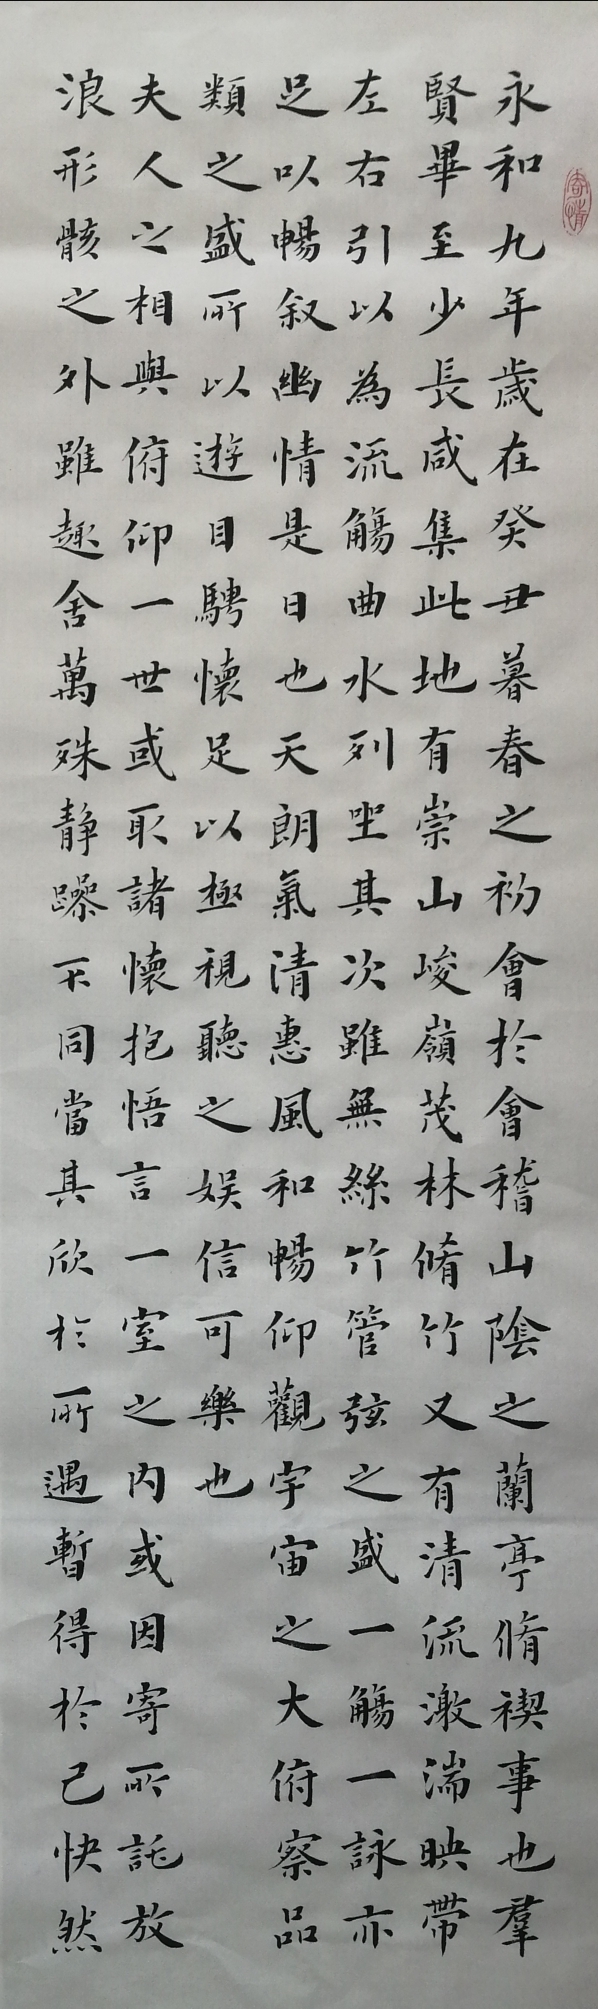 寄情
永和九年歲在癸丑暮春之初會於會稽山陰之蘭亭脩禊事也羣
賢畢至少長咸集此地有崇山峻嶺茂林脩竹又有清流激湍映帶
左右引以為流觴曲水列坐其次雖無絲竹管弦之盛一觴一詠亦
足以暢叙幽情是日也天朗氣清惠風和暢仰觀宇宙之大俯察品
類之盛所以遊目騁懷足以極視聽之娱信可樂也
夫人之相與俯仰一世或取諸懷抱悟言一室之内或因寄所託放
浪形骸之外雖趣舍萬殊静躁不同當其欣於所遇暫得於己快然